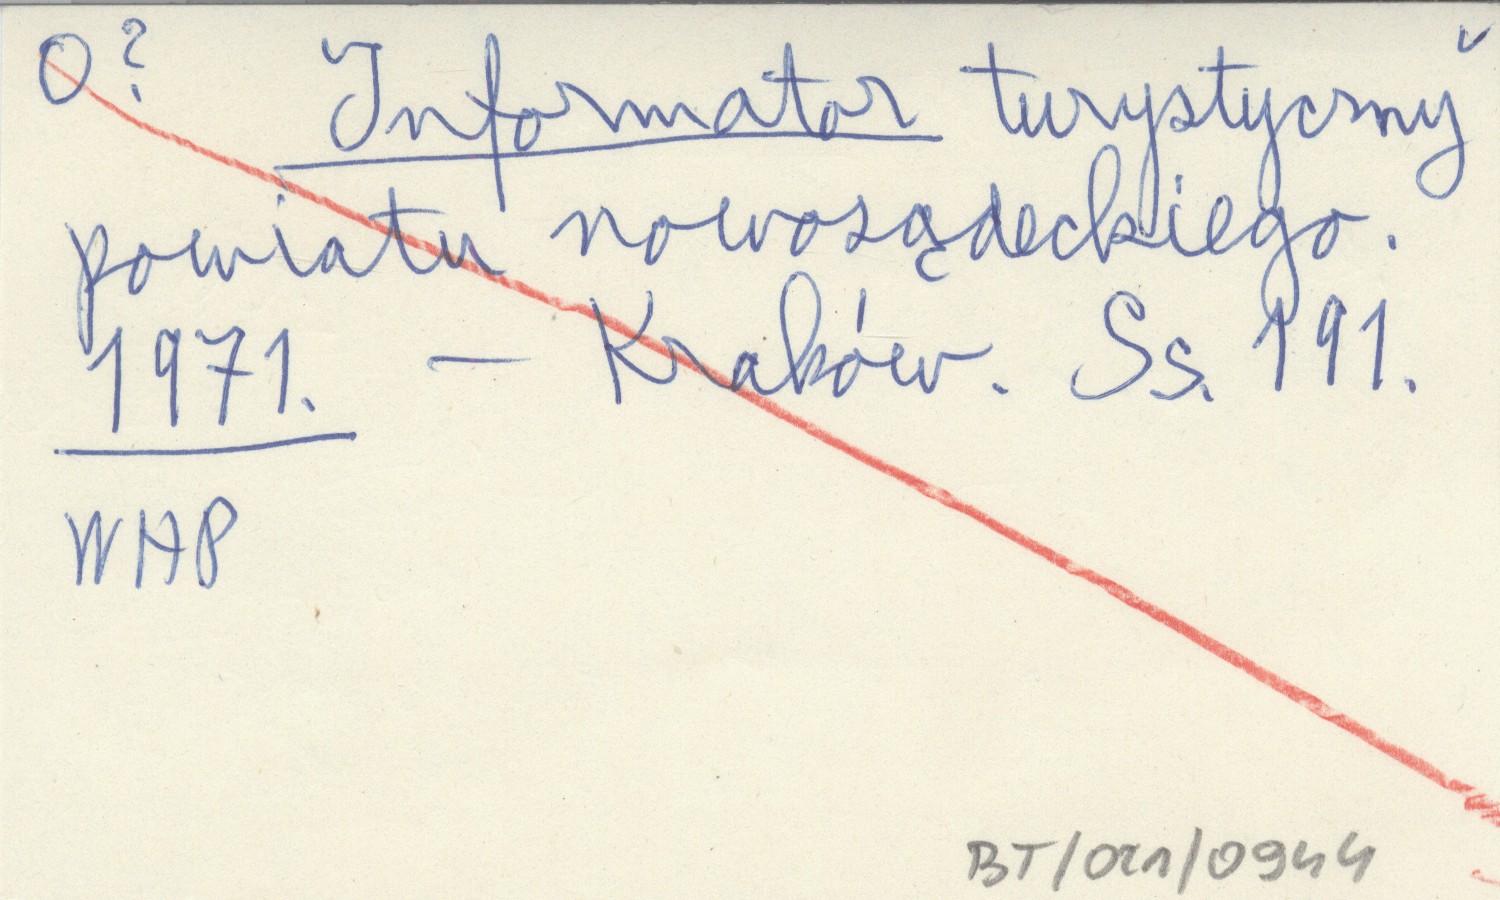 O? Informator turystyczny
powiatu nowosądeckiego.
1971. — Kraków. Ss. 191.
WAP
BT/021/0944